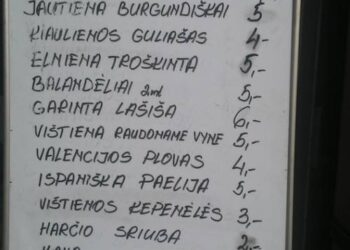 JAUTIENA BURGUNDIŠKAI 5
KIAULIENOS GULIAŠAS 4-
ELNIENA TROŠKINTA 5,-
BALANDĖLIAI 2vnt 5,-
GARINTA LAŠIŠA 6,-
VIŠTIENA RAUDONAME VYNE 5,-
VALENCIJOS PLOVAS 4,-
ISPANIŠKA PAELIJA 5,-
VIŠTIENOS KEPENĖLĖS 3,-
HARČIO SRIUBA 2,-